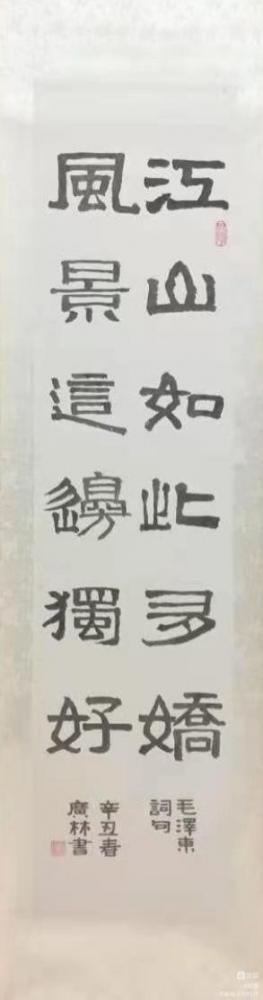 江山如此多嬌
風景這邊獨好
毛澤東
詞句
辛丑春
廣林書